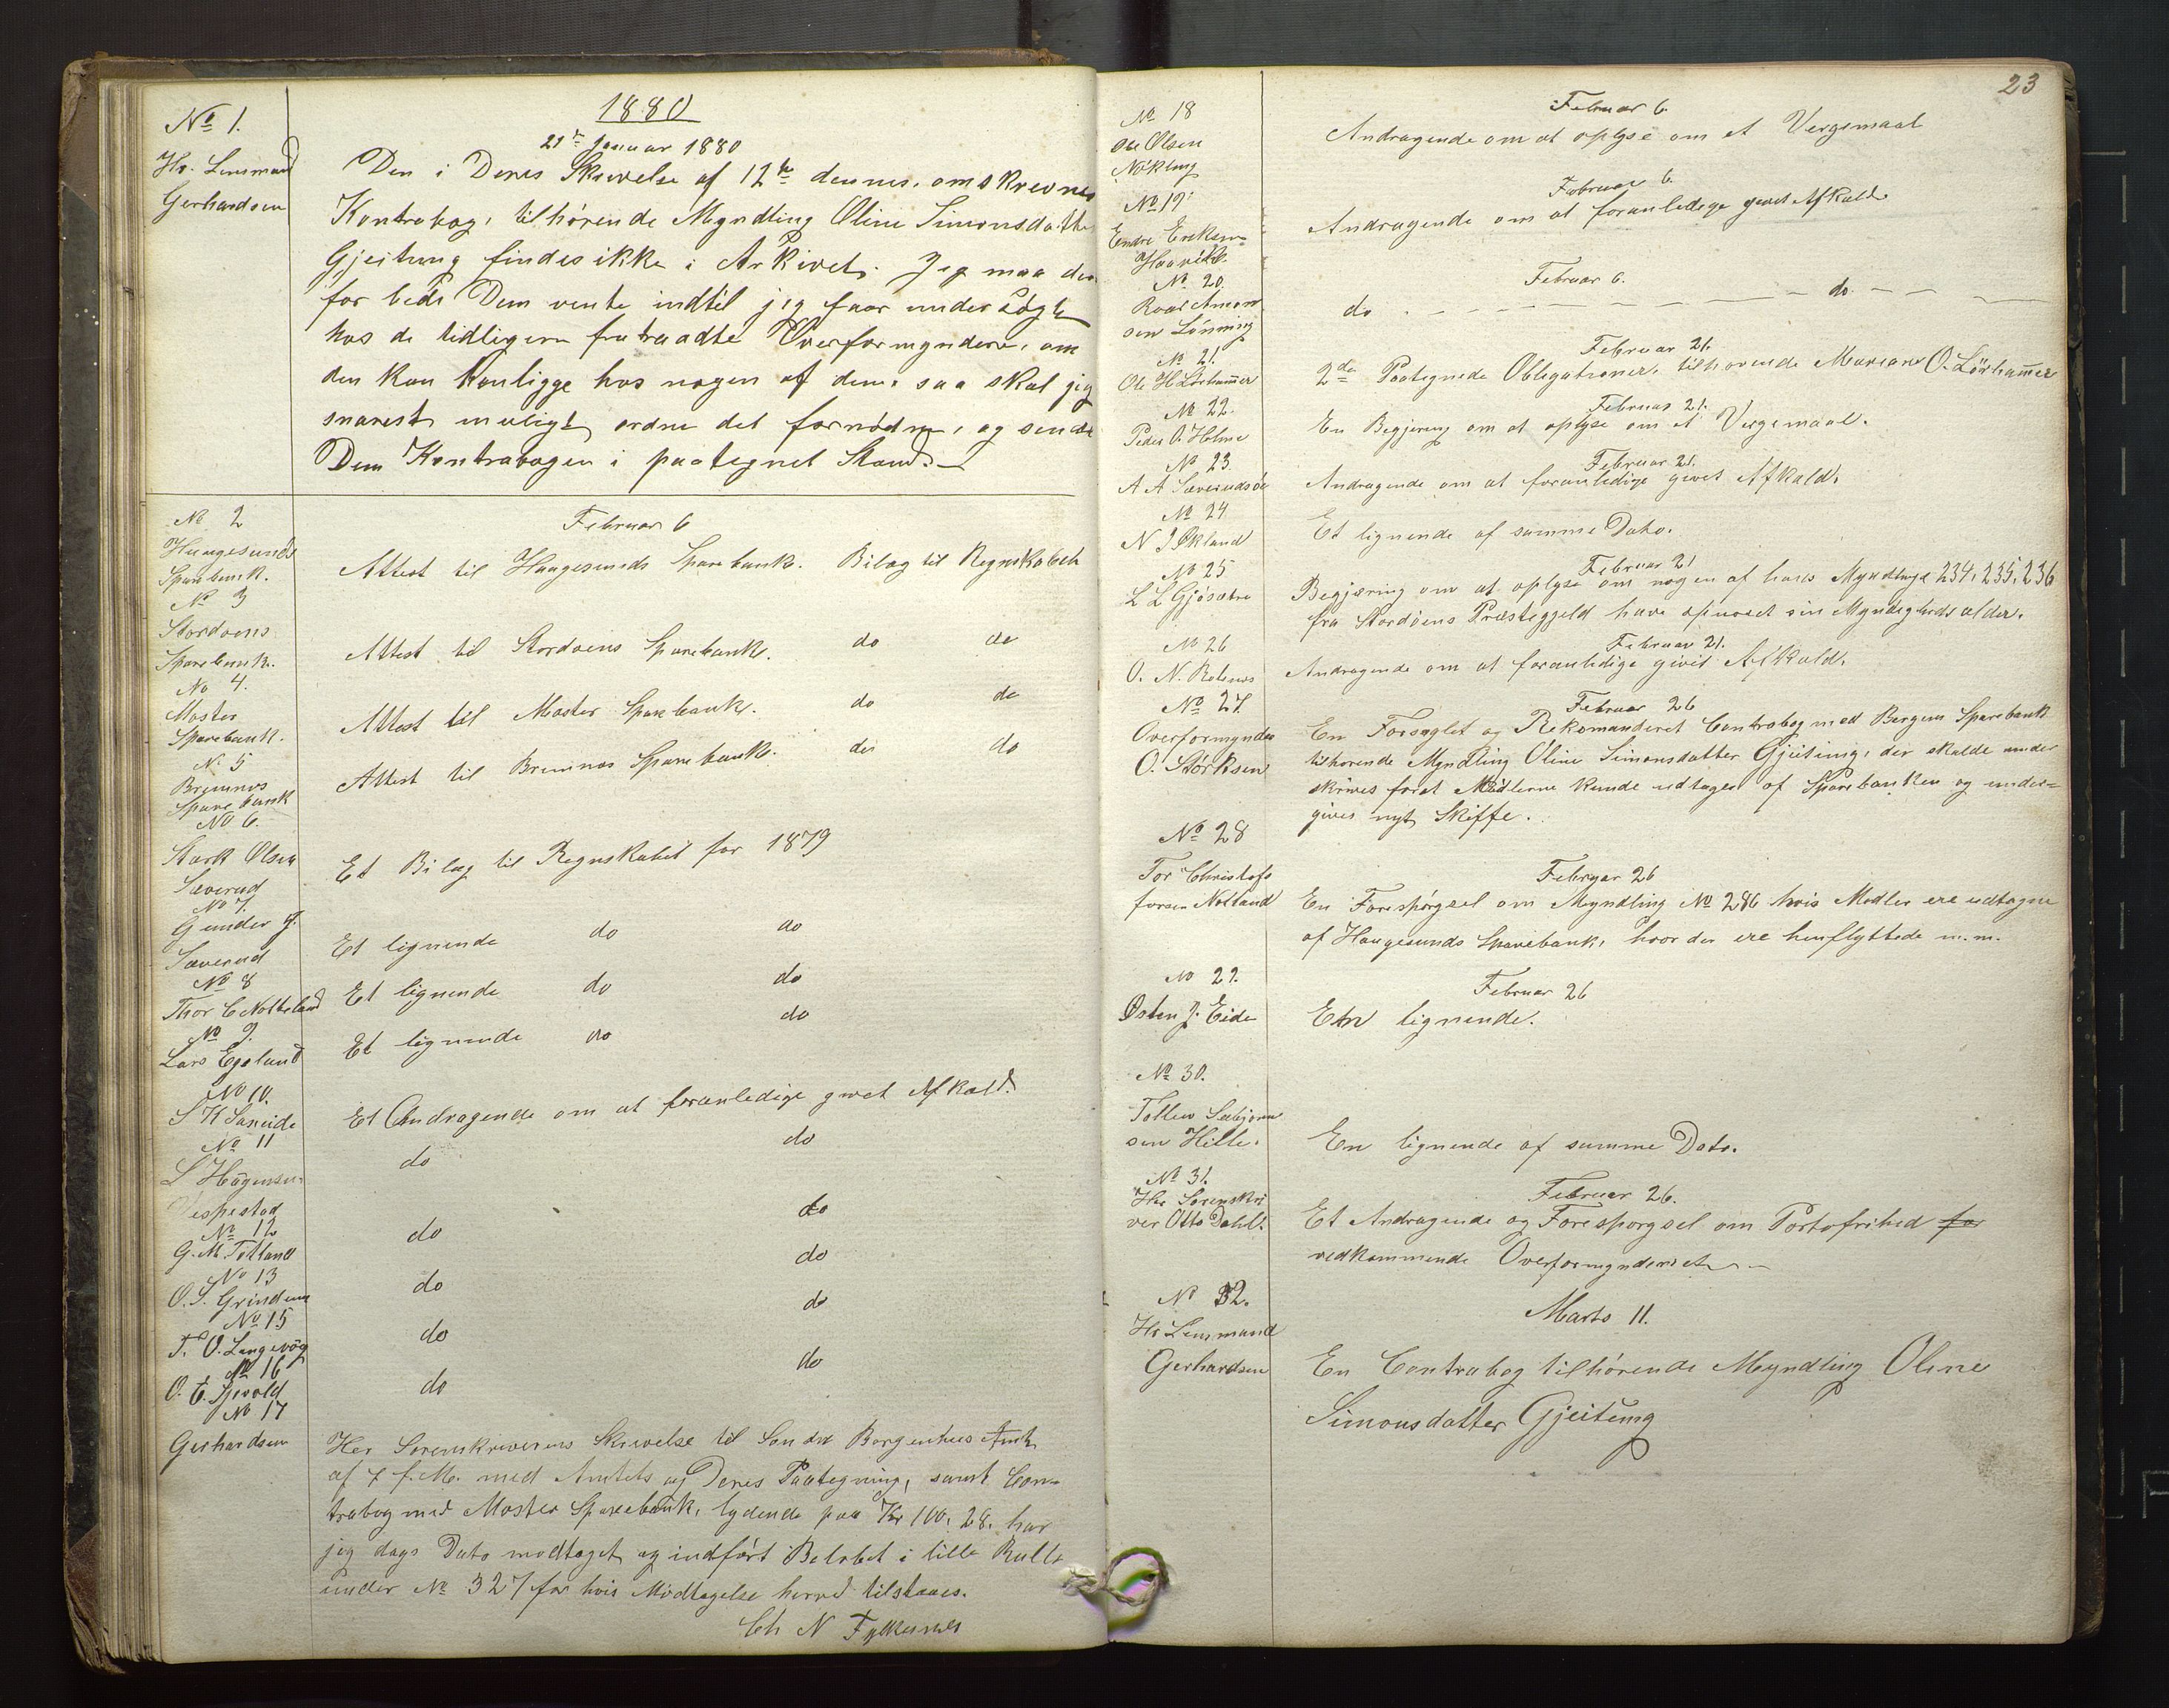 1880
No 1.
Hr. Lensmand
Gerhardsen
21de Januar 1880
Den i Deres Skrivelse af 12te dennes, omskrevne
Kontrabog, tilhørende Myndling Oline Simonsdatter
Gjeitung findes ikke i Arkivet. Jeg maa der
for bede Dem vente indtil jeg faar undersögt
hos de tidligere fratraadte Overformyndere, om
den kan henligge hos nogen af dem, saa skal jeg
snarest muligt ordne det fornødne, og sende
Dem Kontrabogen i paategnet Stand.
No 2
Haugesunds
Sparebank.
Februar 6
Attest til Haugesunds Sparebank. Bilag til Regnskabet
No 3
Stordøens
Sparebank.
Attest til Stordøens Sparebank. do do
No 4.
Moster
Sparebank.
Attest til Moster Sparebank. do do
No 5
Bremnes
Sparebank
Attest til Bremnes Sparebank. do do
No 6.
Stark Olsen
Sæverud
Et Bilag til Regnskabet for 1879
No 7.
Gunder J.
Sæverud
Et lignende do do
No 8
Thor C Notteland
Et lignende do do
No 9.
Lars Egeland
Et lignende do do
No 10.
S K Saneide
Et Andragende om at foranledige givet Afkald.
No 11
S Hågensen
Vespestad
do do
No 12
G. M. Totland
do do
No 13
O. S. Grindem
do do
No 15
T. O. Langevåg
do do
No 16
O. E.
do do
No 17
Gerhardsen
Her Sorenskriverens Skrivelse til Søndre Bergenhus Amt
af 7 f. M. med Amtets og Deres Paategning, samt Con-
trabog med Moster Sparebank, lydende paa Kr 100,28. har
jeg dags Dato modtaget og indført Beløbet i lille Rulle
under No 327 for hvis Modtagelse herved tilstaaes.
Ch N Fylkesnes
23
No 18
Ole Olsen
Nökling
Februar 6.
Andragende om at oplyse om et Vergemaal
No 19.
Endre Eriksen
Haavik
Februar 6.
Andragende om at foranledige givet Afkald
No 20.
Roald Amon
sen Lönning
Februar 6.
do do
No 21.
Ole H Lörhammer
Februar 21.
2de Paategnede Obligationer, tilhorende Mariane O. Lörhammer
No 22.
Peder O. Holme
Februar 21.
En Begjæring om at oplyse om et Vergemaal.
No 23.
A A Sæverudsöe
Februar 21.
Andragende om at foranledige givet Afkald.
No 24
N J Økland
Et lignende af samme Dato.
No 25
L L Gjösætre
Februar 21
Begjæring om at oplyse om nogen af hans Myndlinge 234, 235, 236
fra Stordöens Præstegjeld have opnaaet sin Myndighedsalder.
No 26
O. N. Rolsnes
Februar 21.
Andragende om at foranledige givet Afkald.
No 27.
Overformynder
O. Störksen
Februar 26
En Forseglet og Rekomanderet Contrabog med Bergens Sparebank
tilhorende Myndling Oline Simonsdatter Gjeitung, der skulde under
skrives forat Midlerne kunde udtages af Sparebanken og under-
gives nyt Skifte.
No 28
Tor Christof
fersen Notland
Februar 26
En Forespörgsel om Myndling No 286 hvis Midler ere udtagne
af Haugesunds Sparebank, hvor de ere henflyttede m. m.
No 29.
Østen J. Eide
Februar 26
En lignende.
No 30.
Tollew Sæbjørn
sen Hille.
En lignende af samme Dato.
No 31.
Hr Sorenskri
ver Otto Dahl.
Februar 26.
Et Andragende og Forespørgsel om Portofrihed for
vedkommende Overformynderiet
No 32.
Hr Lensmand
Gerhardsen
Marts 11.
En Contrabog tilhørende Myndling Oline
Simonsdatter Gjeitung